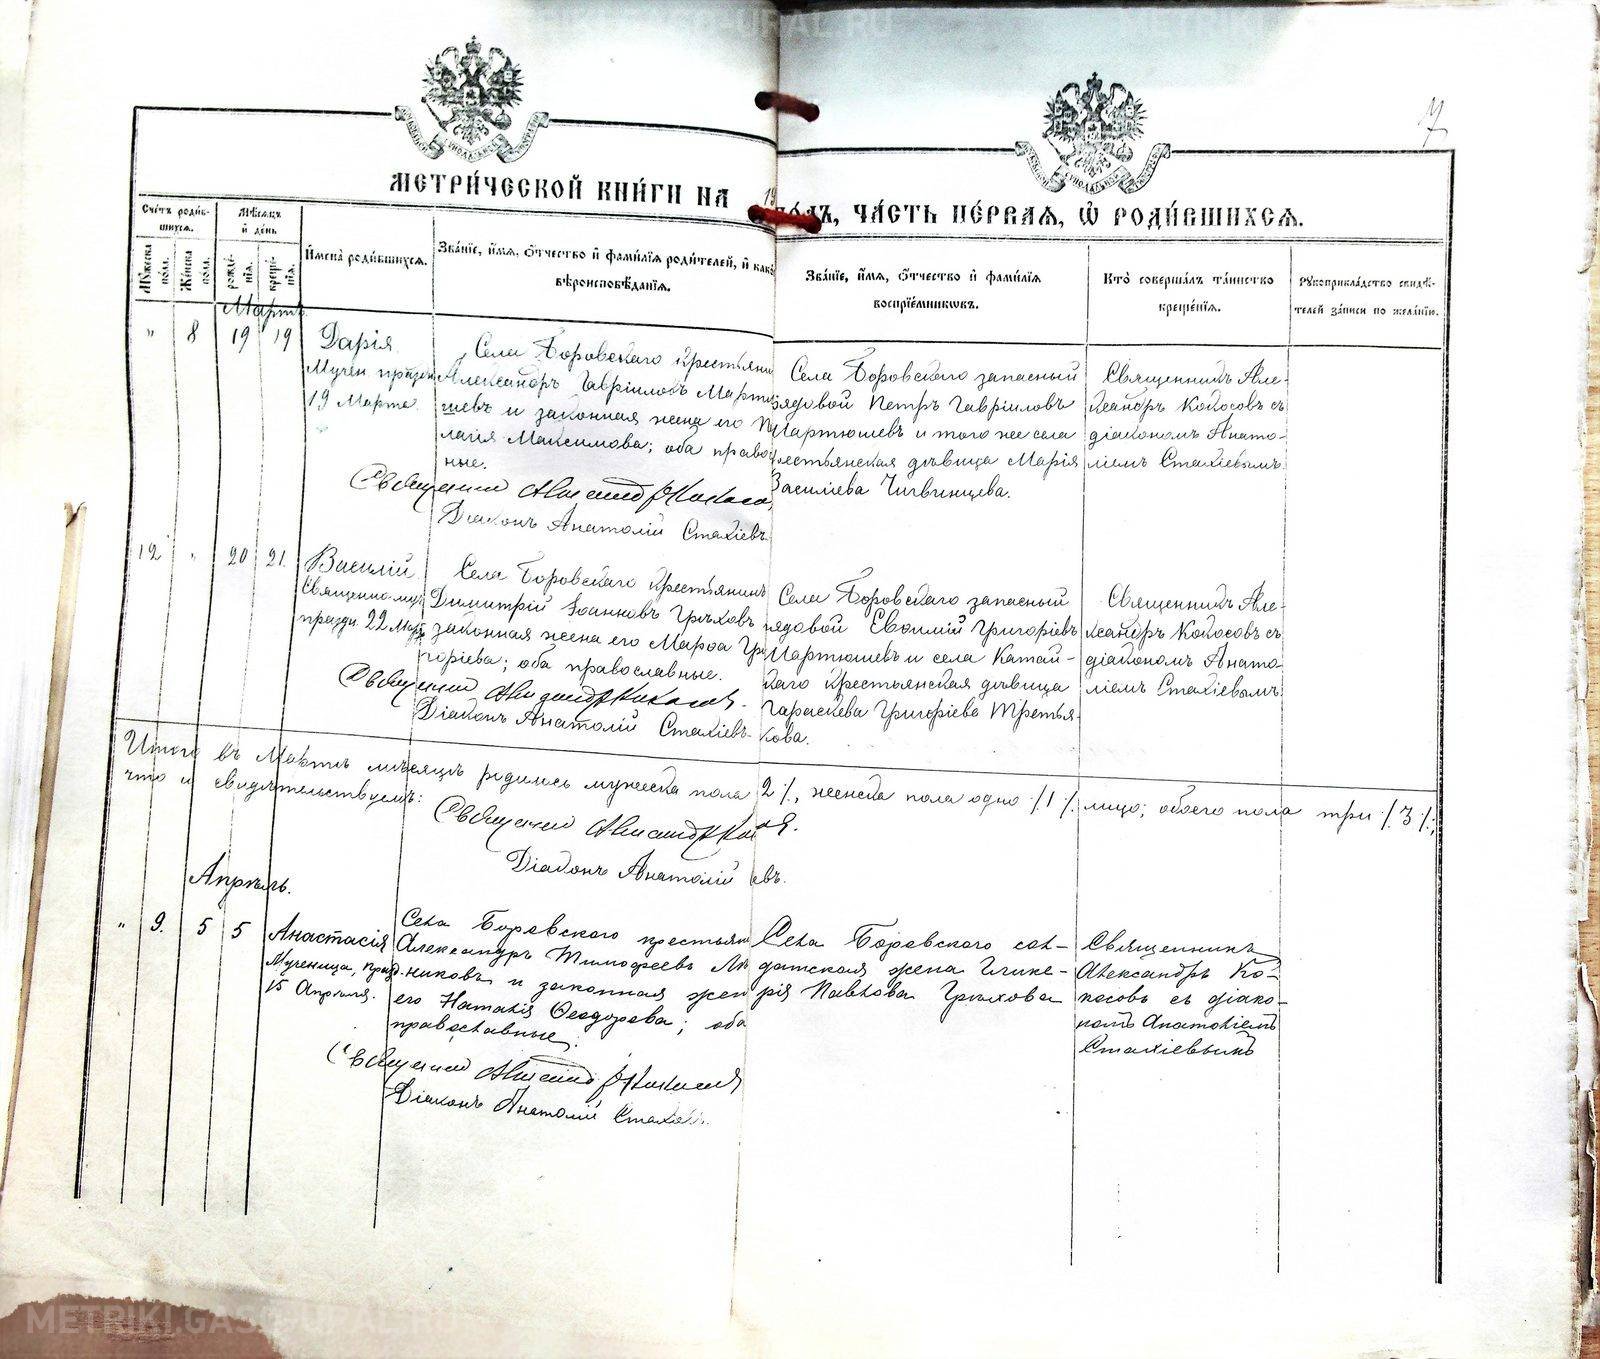 METRIKI.GASO-URAL.RU
METRIKI.GASO-URAL.RU
МЕТРИ́ЧЕСКОЙ КНИ́ГИ НА 19 ГО́ДЪ, ЧА́СТЬ ПЕ́РВАЯ, Ѽ РОДИ́ВШИХСЯ.
Сче́тъ роди́в-
шихся.
Мѣ́сяцъ
и̂ де́нь
Мꙋ́жеска
пола.
Же́нска
пола.
рожде́-
нїя.
креще́-
нїя.
И̂мена̀ роди́вшихся.
Зва́нїе, и́мя, ѻ́тчество и̂ фами́лїя роди́телей, и̂ како́
вѣроисповѣ́данїя.
Зва́нїе, и́мя, ѻ́тчество и̂ фами́лїя
воспрїе́мниковъ.
Кто̀ соверша́лъ та́инство
креще́нїя.
Рꙋкоприкла́дство свидѣ́-
телей за́писи по жела́нїю.
Мартъ.
" 8 19 19
Дарія
Мучен праздн
19 Марта
Села Боровскаго крестьяни
Александръ Гавріиловъ Мартю
шевъ и законная жена его П
лагія Максимова; оба право
ные.
Священникъ Александръ Кокосо
Діаконъ Анатолій Стахіевъ
Села Боровскаго запасный
рядовой Петръ Гавріиловъ
Мартюшевъ и того же села
крестьянская дѣвица Марія
Василіева Чигвинцева.
Священникъ Але-
ксандръ Кокосовъ съ
діакономъ Анато-
ліемъ Стахіевымъ
12 " 20 21
Василій
Священномуч
праздн. 22 Март
Села Боровскаго крестьянинъ
Димитрій Іоанновъ Грѣховъ
законная жена его Марѳа Гри
горіева; оба православные.
Священникъ Александръ Кокосовъ.
Діаконъ Анатолій Стахіевъ.
Села Боровскаго запасный
рядовой Евѳимій Григоріевъ
Мартюшевъ и села Катай-
скаго крестьянская дѣвица
Параскева Григоріева Третья-
кова.
Священникъ Але-
ксандръ Кокосовъ съ
діакономъ Анато-
ліемъ Стахіевымъ
Итого въ Мартѣ мѣсяцѣ родилось мужеска пола 2 /., женска пола одно ./1 /. лицо; обоего пола три ./. 3 /.;
что и свидѣтельствуемъ:
Священникъ Александръ Ко
Діаконъ Анатолій евъ.
Апрѣль.
" 9. 5 5
Анастасія
Мученица, празд.
15 Апрѣля.
Села Боровского крестьян
Александръ Тимофеевъ
никовъ и законная жен
его Наталія Ѳеодорова; оба
православные.
Священникъ Александръ Кокосовъ
Діаконъ Анатолій Стахіевъ.
Села Боровского сол-
датская жена Глике-
рія Павлова Грѣхова
Священникъ
Александръ Ко-
косовъ съ діако-
номъ Анатоліемъ
Стахіевымъ
METRIKI.GASO-URAL.RU